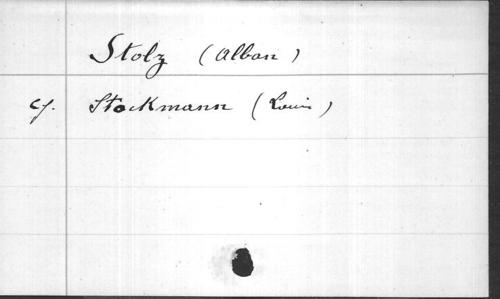 Stolz (Alban)
cf. Stockmann (Louis)